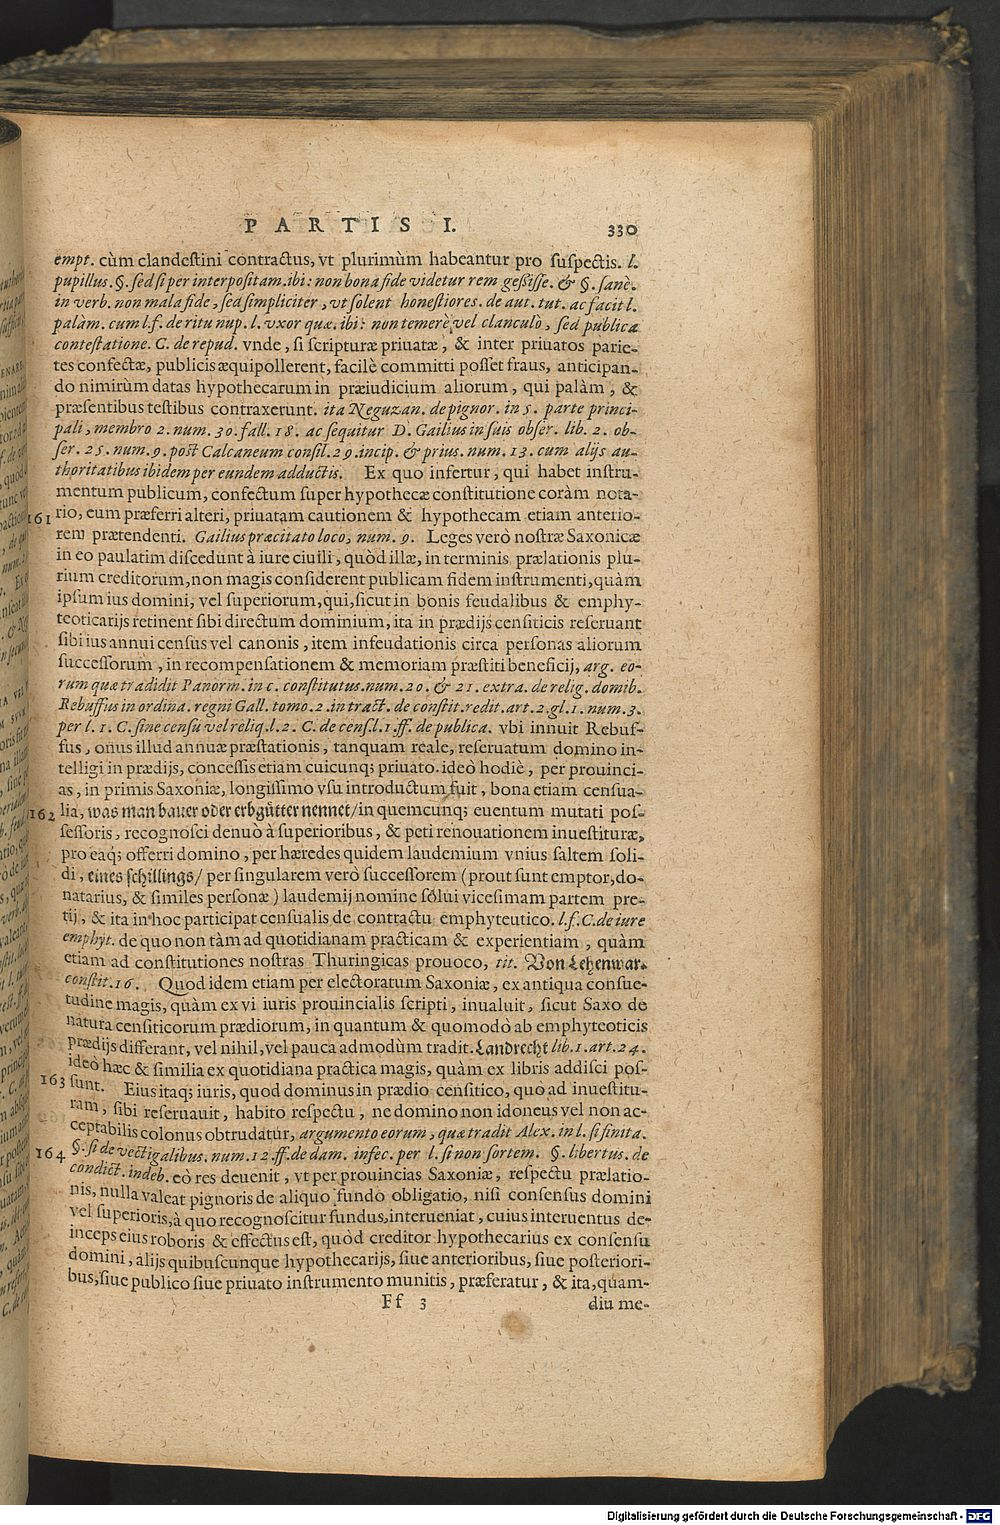 PARTIS I. 330
empt. cùm clandestini contractus, vt plurimùm habeantur pro suspectis. l.
pupillus. §. sed si per interpositam. ibi: non bona fide videtur rem gessisse. & §. sanè.
in verb. non mala fide, sed simpliciter, vt solent honestiores. de aut. tut. ac facit l.
palàm. cum l.f. de ritu nup. l. vxor quæ. ibi: non temerè vel clanculò, sed publica
contestatione. C. de repud. vnde, si scripturæ priuatæ, & inter priuatos parie-
tes confectæ, publicis æquipollerent, facilè committi posset fraus, anticipan-
do nimirùm datas hypothecarum in præiudicium aliorum, qui palàm, &
præsentibus testibus contraxerunt. ita Neguzan. de pignor. in 5. parte princi-
pali, membro 2. num. 30. fall. 18. ac sequitur D. Gailius in suis obser. lib. 2. ob-
ser. 25. num. 9. post Calcaneum consil. 29. incip. & prius. num. 13. cum alijs au-
thoritatibus ibidem per eundem adductis. Ex quo infertur, qui habet instru-
mentum publicum, confectum super hypothecæ constitutione coràm nota-
161 rio, eum præferri alteri, priuatam cautionem & hypothecam etiam anterio-
rem prætendenti. Gailius præcitato loco, num. 9. Leges verò nostræ Saxonicæ
in eo paulatim discedunt à iure ciuili, quòd illæ, in terminis prælationis plu-
rium creditorum, non magis considerent publicam fidem instrumenti, quàm
ipsum ius domini, vel superiorum, qui, sicut in bonis feudalibus & emphy-
teoticarijs retinent sibi directum dominium, ita in prædijs censiticis reseruant
sibi ius annui census vel canonis, item infeudationis circa personas aliorum
successorum, in recompensationem & memoriam præstiti beneficij, arg. eo-
rum quæ tradidit Panorm. in c. constitutus. num. 20. & 21. extra. de relig. domib.
Rebuffus in ordina. regni Gall. tomo. 2. in tract. de constit. redit. art. 2. gl. 1. num. 3.
per l. 1. C. sine censu vel reliq. l. 2. C. de cens. l. 1. ff. de publica. vbi innuit Rebuf-
fus, onus illud annuæ præstationis, tanquam reale, reseruatum domino in-
telligi in prædijs, concessis etiam cuicunq; priuato. ideò hodiè, per prouinci-
as, in primis Saxoniæ, longissimo vsu introductum fuit, bona etiam censua-
162 lia, was man bauer oder erbgütter nennet/ in quemcunq; euentum mutati pos-
sessoris, recognosci denuò à superioribus, & peti renouationem inuestituræ,
pro eaq; offerri domino, per hæredes quidem laudemium vnius saltem soli-
di, eines schillings/ per singularem verò successorem (prout sunt emptor, do-
natarius, & similes personæ) laudemij nomine solui vicesimam partem pre-
tij, & ita in hoc participat censualis de contractu emphyteutico. l.f. C. de iure
emphyt. de quo non tàm ad quotidianam practicam & experientiam, quàm
etiam ad constitutiones nostras Thuringicas prouoco, tit. Von Lehenwar.
constit. 16. Quod idem etiam per electoratum Saxoniæ, ex antiqua consue-
tudine magis, quàm ex vi iuris prouincialis scripti, inualuit, sicut Saxo de
natura censiticorum prædiorum, in quantum & quomodò ab emphyteoticis
prædijs differant, vel nihil, vel pauca admodùm tradit. Landrecht lib. 1. art. 24.
ideò hæc & similia ex quotidiana practica magis, quàm ex libris addisci pos-
163 sunt. Eius itaq; iuris, quod dominus in prædio censitico, quo ad inuestitu-
ram, sibi reseruauit, habito respectu, ne domino non idoneus vel non ac-
ceptabilis colonus obtrudatur, argumento eorum, quæ tradit Alex. in l. si finita.
164 §. si de vectigalibus. num. 12. ff. de dam. infec. per l. si non sortem. §. libertus. de
condict. indeb. eò res deuenit, vt per prouincias Saxoniæ, respectu prælatio-
nis, nulla valeat pignoris de aliquo fundo obligatio, nisi consensus domini
vel superioris, à quo recognoscitur fundus, interueniat, cuius interuentus de-
inceps eius roboris & effectus est, quòd creditor hypothecarius ex consensu
domini, alijs quibuscunque hypothecarijs, siue anterioribus, siue posteriori-
bus, siue publico siue priuato instrumento munitis, præferatur, & ita, quam-
Ff 3 diu me-
Digitalisierung gefördert durch die Deutsche Forschungsgemeinschaft - DFG